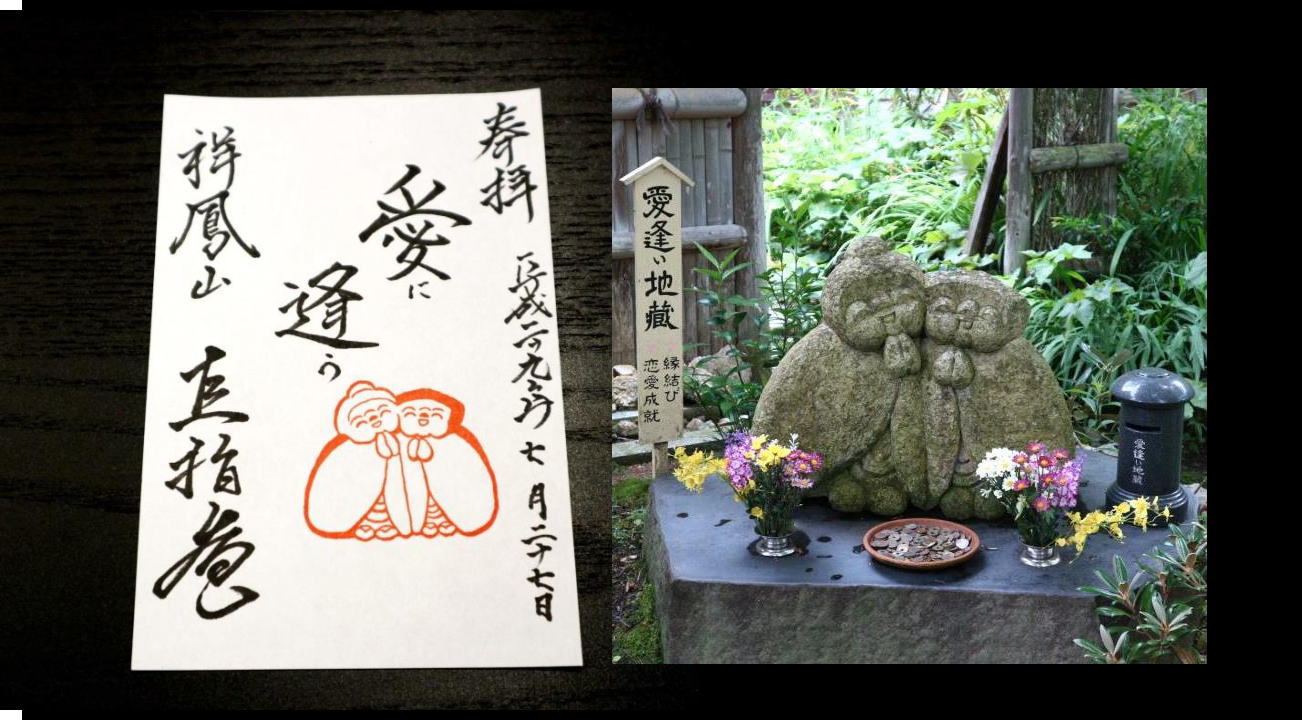 奉拝 平成二十九年 七月二十七日
愛に
逢う
祥鳳山 直指庵
愛逢い地蔵
縁結び
恋愛成就
愛逢い地蔵